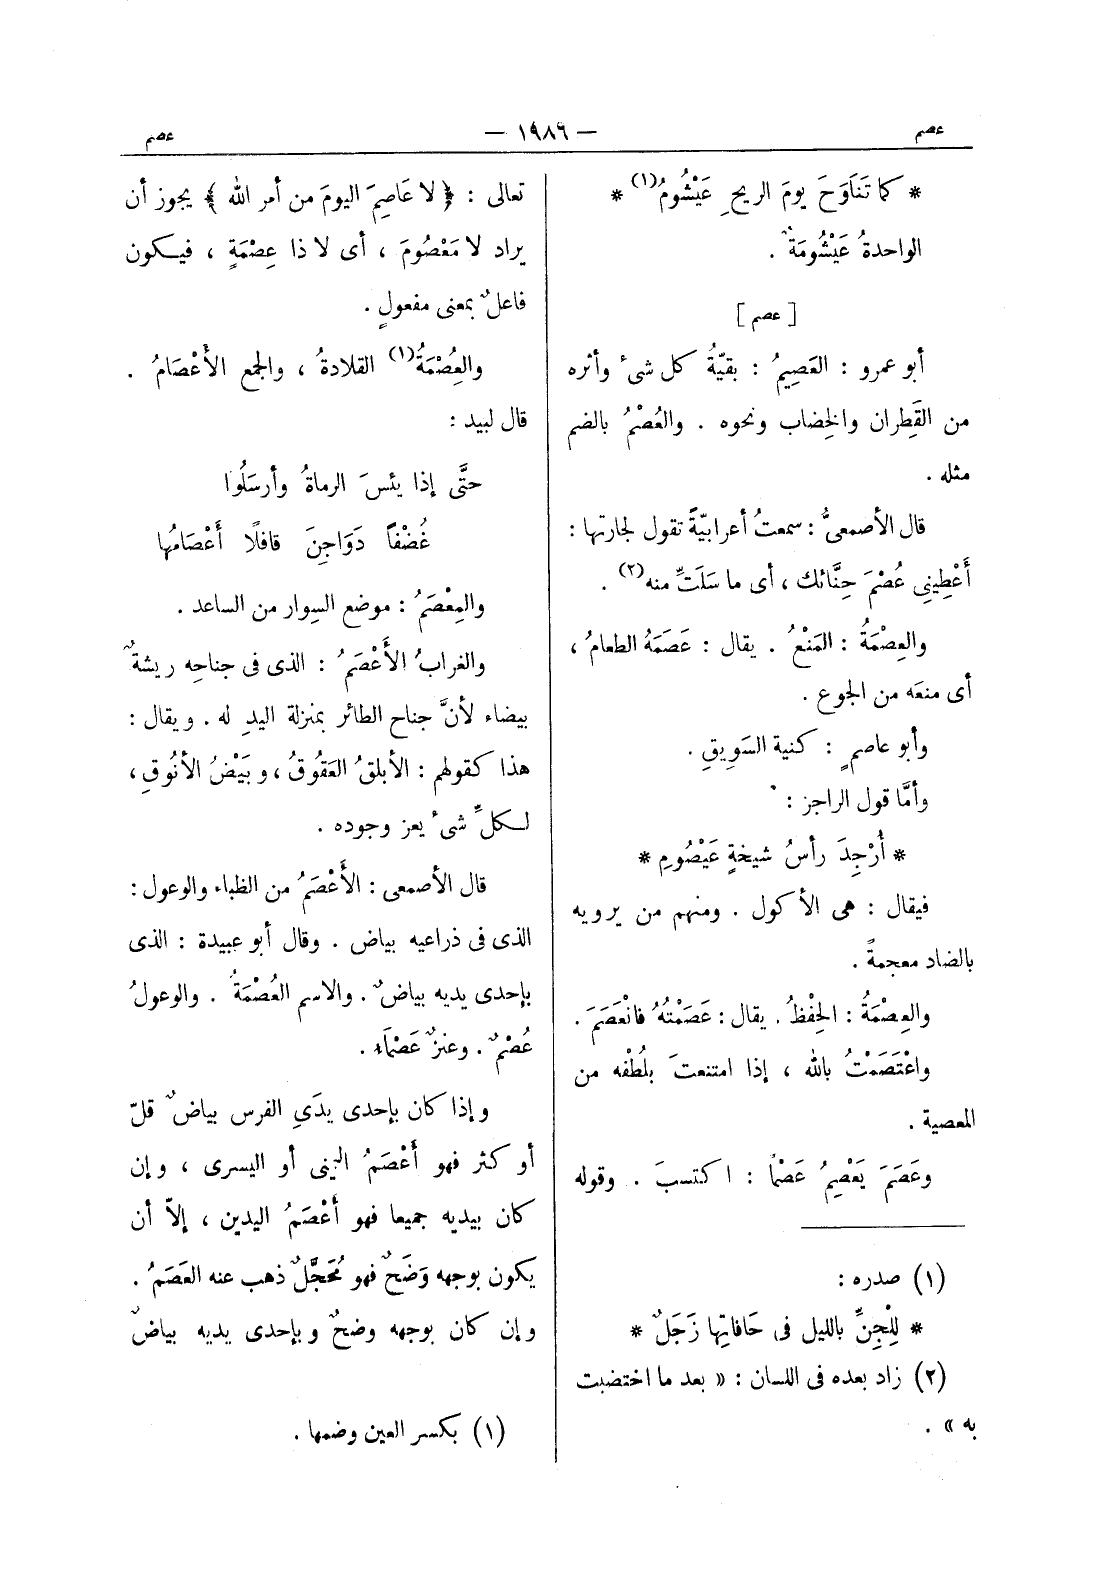 عصم
— ١٩٨٦ —
عصم
* كما تَنَاوَحَ يومَ الريحِ عَيْشُومُ(١) *
الواحدةُ عَيْشُومَةٌ .
[ عصم ]
أبو عمرو : العَصِيمُ : بقيّةُ كل شىْ وأثره
من القَطِران والخِضاب ونحوه . والعُصْمُ بالضم
مثله .
قال الأصمعىُّ : سمعتُ أعرابيّةً تقول لجارتها :
أَعْطِينِى عُصْمَ حِنَّائك ، أى ما سَلَتِّ منه(٢) .
والعِصْمَةُ : المَنْعُ . يقال : عَصَمَهُ الطعامُ ،
أى منعَه من الجوع .
وأبو عاصمٍ : كنية السَوِيقِ .
وأمَّا قول الراجز :
* أُرْجِدَ رأسُ شيخةٍ عَيْصُومِ *
فيقال : هى الأكول . ومنهم من يرويه
بالضاد معجمةً .
والعِصْمَةُ : الحِفْظُ . يقال : عَصَمْتُهُ فانْعَصَمَ .
واعْتَصَمْتُ بالله ، إذا امتنعتَ بلُطْفه من
المعصية .
وعَصَمَ يَعْصِمُ عَصْمًا : اكتسبَ . وقوله
(١) صدره :
* لِلْجِنِّ بالليل فى حَافاتِها زَجَلٌ *
(٢) زاد بعده فى اللسان : « بعد ما اختضبت
به » .
تعالى : ﴿ لا عَاصِمَ اليومَ من أمر الله ﴾ يجوز أن
يراد لا مَعْصُومَ ، أى لا ذا عِصْمَةٍ ، فيكون
فاعلٌ بمعنى مفعولٍ .
والعِصْمَةُ(١) القلادةُ ، والجمع الأَعْصَامُ .
قال لبيد :
حتَّى إذا يئسَ الرماةُ وأرسَلُوا
غُضْفًا دَوَاجِنَ قافلًا أَعْصَامُها
والمِعْصَمُ : موضع السِوار من الساعد .
والغرابُ الأَعْصَمُ : الذى فى جناحِه ريشةٌ
بيضاء لأنَّ جناح الطائر بمنزلة اليدِ له . ويقال :
هذا كقولهم : الأبلقُ العَقُوقُ ، وبَيْضُ الأنُوقِ ،
لـكلِّ شىْ يعز وجوده .
قال الأصمعى : الأَعْصَمُ من الظباء والوعول :
الذى فى ذراعيه بياض . وقال أبو عبيدة : الذى
بإحدى يديه بياضٌ . والاسم العُصْمَةُ . والوعولُ
عُصْمٌ . وعنزٌ عَصْمَاءُ .
وإذا كان بإحدى يدَىِ الفرس بياضٌ قلّ
أو كثر فهو أَعْصَمُ اليمنى أو اليسرى ، وإن
كان بيديه جميعا فهو أَعْصَمُ اليدين ، إلاّ أن
يكون بوجهه وَضَحٌ فهو مُحَجَّلٌ ذهب عنه العَصَمُ .
وإن كان بوجهه وضحٌ وبإحدى يديه بياضٌ
(١) بكسر العين وضمها .